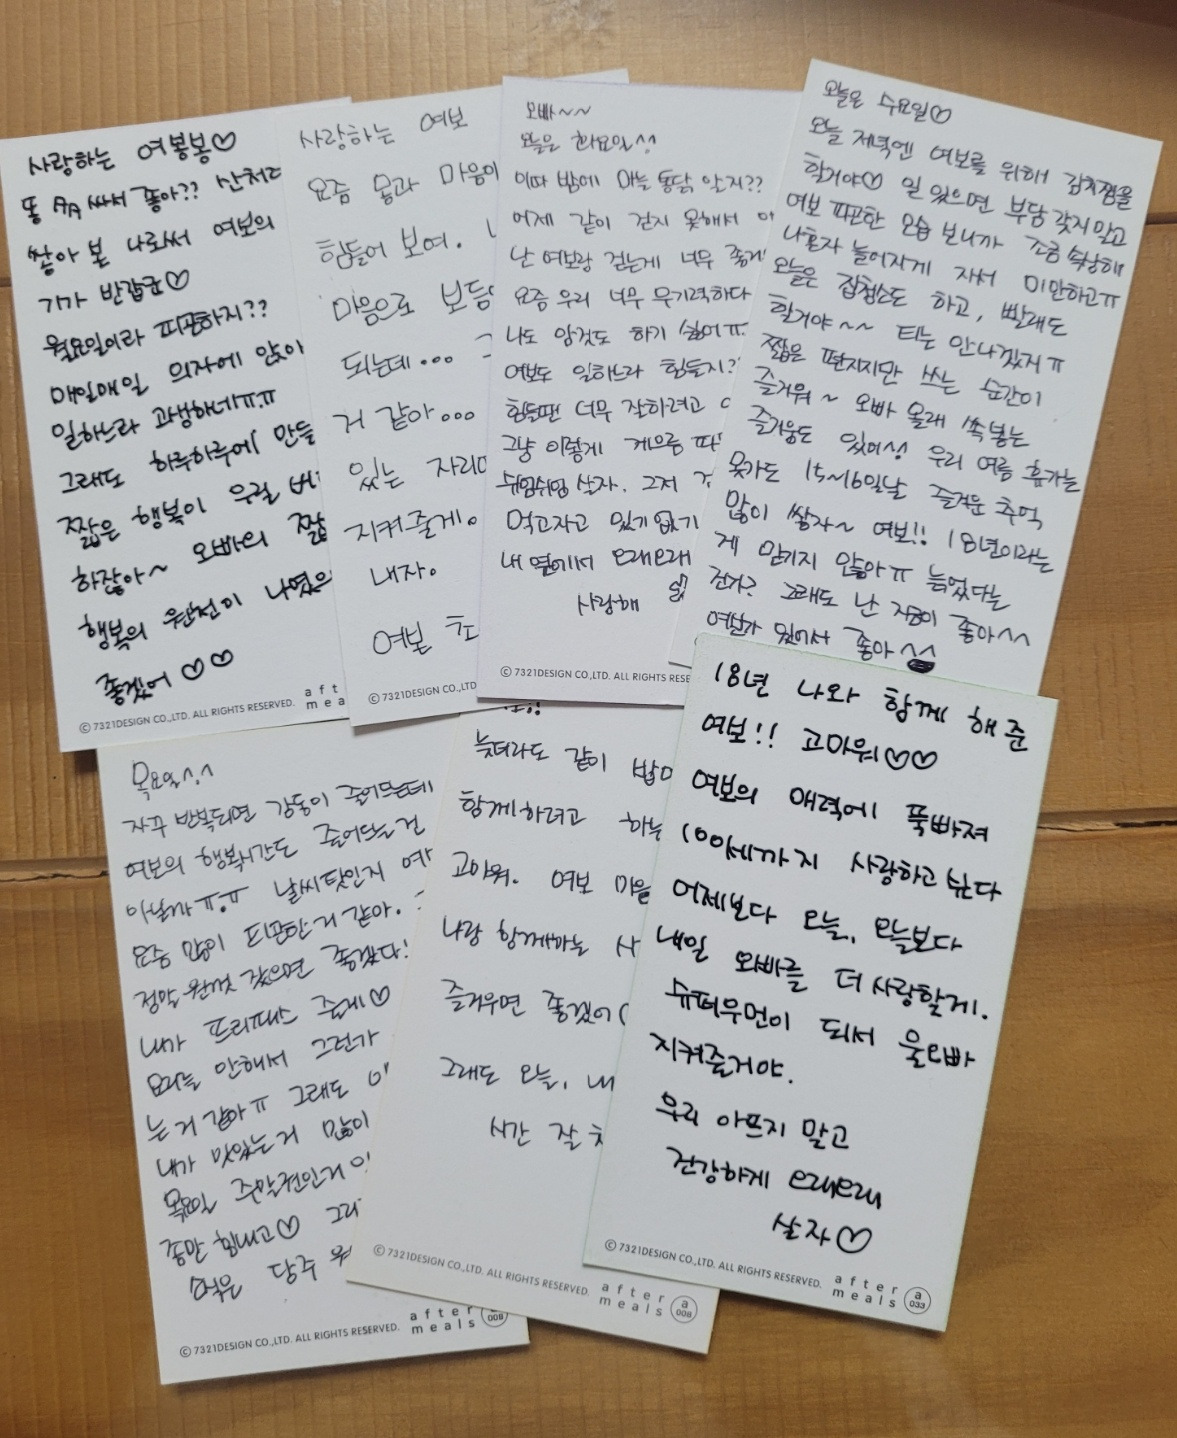 사랑하는 여봉봉♡
똥 싸서 좋아??
쌓아 본 나로써 여보의
기가 반갑군♡
월요일이라 피곤하지??
매일매일 의자에 앉아
일하느라 고생하네ㅠㅠ
그래도 하루하루에 만들
짧은 행복이 우릴
하잖아~ 오빠의 짧
행복의 원천이 나였으
좋겠어♡♡
ⓒ 7321DESIGN CO.,LTD. ALL RIGHTS RESERVED.
사랑하는 여보
요즘 몸과 마음이
힘들어 보여.
마음으로 보듬
되는데...
거 같아...
있는 자리
지켜줄게.
내자.
여보
ⓒ 7321DESIGN CO.,LTD
오빠~~
오늘은 화요일^^
이따 밤에 마늘통닭 알지??
어제 같이 걷지 못해서
난 여보랑 걷는게 너무 좋
요즘 우리 너무 무기력하다
나도 암것도 하기 싫어ㅠ
여보도 일하느라 힘들지?
힘들땐 너무 잘하려고
그냥 이렇게 게으름
쉬엄쉬엄 살자. 그저
먹고자고 있기없기
내 옆에서 오래오래
사랑해
ⓒ 7321DESIGN CO.,LTD. ALL RIGHTS RESE
오늘은 수요일♡
오늘 저녁엔 여보를 위해 김치찜을
할거야♡ 일 있으면 부담 갖지말고
여보 피곤한 모습 보니까 조금 속상해
나혼자 늘어지게 자서 미안하고ㅠ
오늘은 집청소도 하고, 빨래도
할거야~~ 티는 안나겠지ㅠ
짧은 편지지만 쓰는 순간이
즐거워~ 오빠 몰래 쏙 넣는
즐거움도 있어^^ 우리 여름 휴가는
못가도 15~16일날 즐거운 추억
많이 쌓자~ 여보!! 18년이라는
게 믿기지 않아ㅠ 늙었다는
건가? 그래도 난 지금이 좋아^^
여보가 있어서 좋아^^
목요일^.^
자꾸 반복되면 감동이 줄어드는데
여보의 행복시간도 줄어드는건
아닐까ㅠ.ㅠ 날씨탓인지
요즘 많이 피곤한거 같아.
정말 원껏 잤으면 좋겠다!
내가 프리패스 줄게♡
요리를 안해서 그런가
는거 같아ㅠ 그래도
내가 맛있는거 많이
목요일 주말전인거
좀만 힘내고♡
ⓒ 7321DESIGN CO.,LTD. ALL RIGHTS RESERVED.
after meals
늦더라도 같이 밥
함께하려고 하는
고마워. 여보 마음
나랑 함께하는
즐거우면 좋겠어
그래도 오늘,
시간 잘
ⓒ 7321DESIGN CO.,LTD. ALL RIGHTS RESERVED.
after meals
a 008
18년 나와 함께 해준
여보!! 고마워♡♡
여보의 매력에 푹빠져
100세까지 사랑하고 싶다
어제보다 오늘, 오늘보다
내일 오빠를 더 사랑할게.
슈퍼우먼이 되서 울오빠
지켜줄거야.
우리 아프지 말고
건강하게 오래오래
살자♡
ⓒ 7321DESIGN CO.,LTD. ALL RIGHTS RESERVED.
after meals
a 033